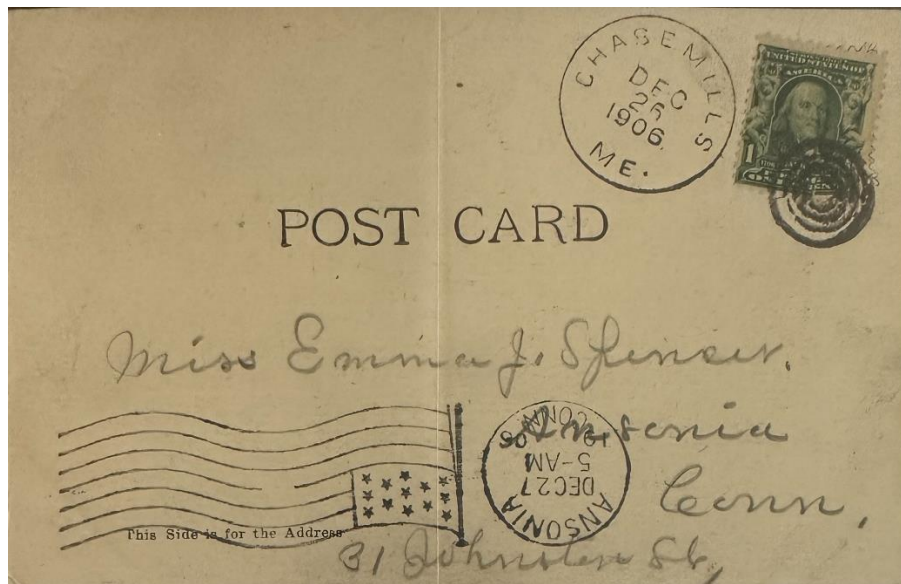 CHASE MILLS
DEC
26
1906.
ME.
UNITED STATES OF
AMERICA
1
POST CARD
Miss Emma J. Spencer.
Ansonia
Conn,
31 Johnston St,
ANSONIA
DEC 27
5-AM
19 06
CONN.
This Side is for the Address